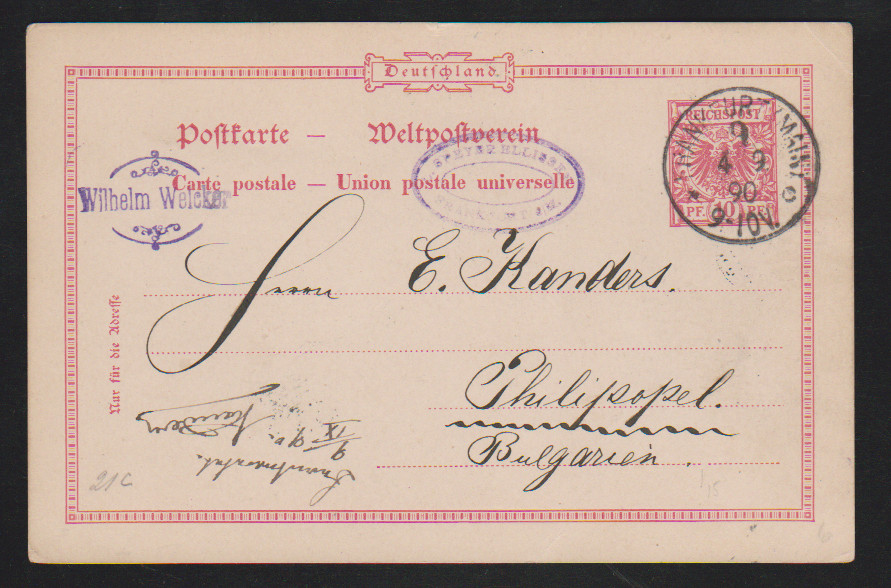 Deutschland.
Postkarte — Weltpostverein
Carte postale — Union postale universelle
REICHSPOST
PF. 10 PF.
FRANKFURT (MAIN)
9
4 9
90
9-10V.
Wilhelm Welcker
SPEYER ELLISSEN
FRANKFURT
Herrn E. Kanders.
Philippopel.
Bulgarien.
Nur für die Adresse
Kanders
9/IX 90.
21c
1/15